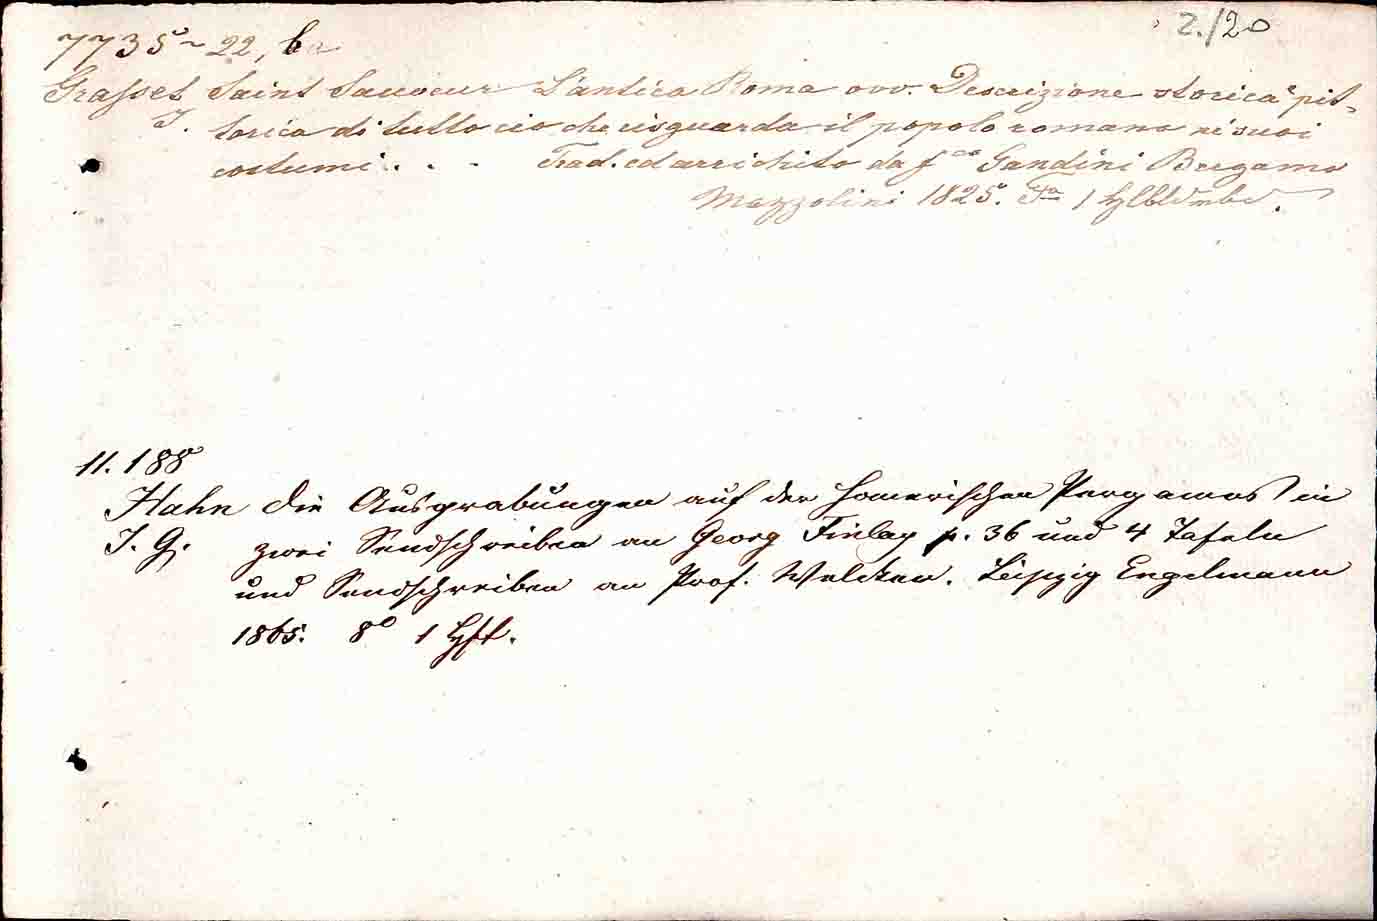 2./20
7735-22, b
Grasset Saint Sauveur L'antica Roma ovv. Descrizione storica e pit-
J. torica di tutto cio che risguarda il popolo romano ne suoi
costumi . . . Trad. ed arrichito da f.co Gandini Bergamo
Mazzolini 1825. 1
11.188
Hahn die Ausgrabungen auf der homerischen Pergamos in
J. G. zwei Sendschreiben an Georg Finlay p. 36 und 4 Tafeln
und Sendschreiben an Prof. Welcker. Leipzig Engelmann
1865. 8° 1 Hft.